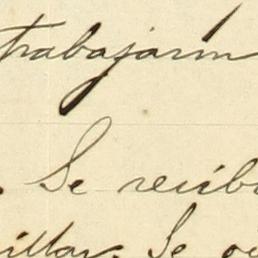 trabajarán
. Se recib
illar. Se